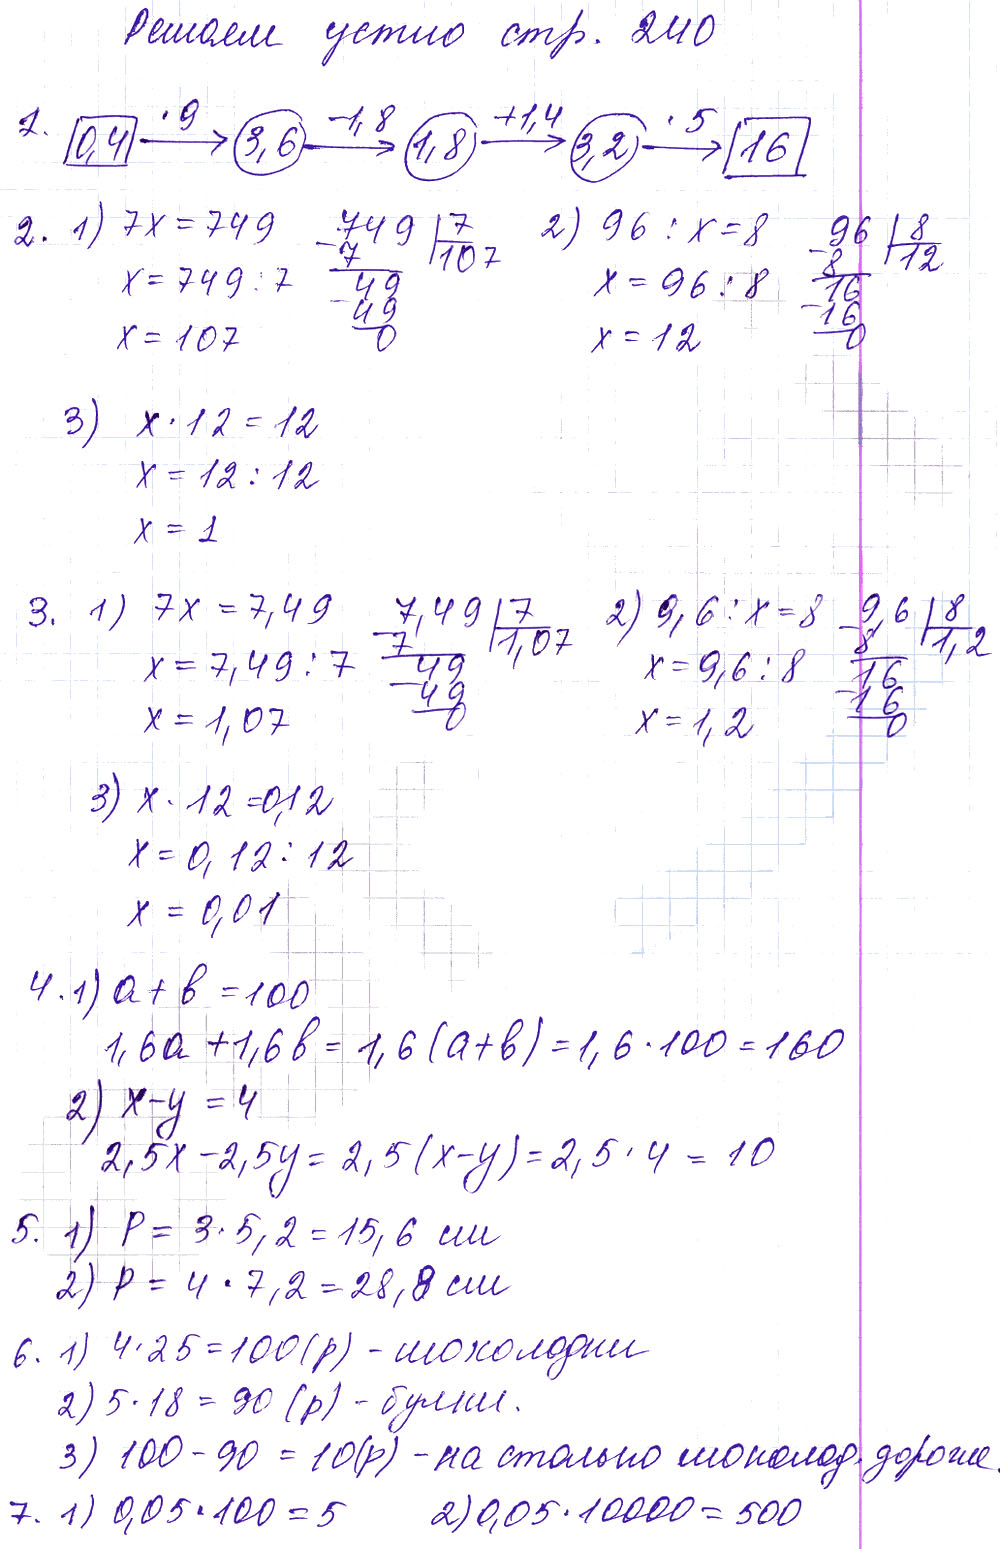 Решаем устно стр. 240
1. 0,4 ·9 → 3,6 -1,8 → 1,8 +1,4 → 3,2 ·5 → 16
2. 1) 7x = 749   749 | 7   2) 96 : x = 8   96 | 8
-7   107   -8   12
x = 749 : 7   49   x = 96 : 8   16
-49   -16
x = 107   0   x = 12   0
3) x · 12 = 12
x = 12 : 12
x = 1
3. 1) 7x = 7,49   7,49 | 7   2) 9,6 : x = 8   9,6 | 8
-7   1,07   -8   1,2
x = 7,49 : 7   49   x = 9,6 : 8   16
-49   -16
x = 1,07   0   x = 1,2   0
3) x · 12 = 0,12
x = 0,12 : 12
x = 0,01
4. 1) a + b = 100
1,6a + 1,6b = 1,6(a+b) = 1,6 · 100 = 160
2) x-y = 4
2,5x - 2,5y = 2,5(x-y) = 2,5 · 4 = 10
5. 1) P = 3 · 5,2 = 15,6 см
2) P = 4 · 7,2 = 28,8 см
6. 1) 4 · 25 = 100(р) - шоколадки
2) 5 · 18 = 90 (р) - булки.
3) 100 - 90 = 10(р) - на столько шоколад. дороже.
7. 1) 0,05 · 100 = 5   2) 0,05 · 10000 = 500